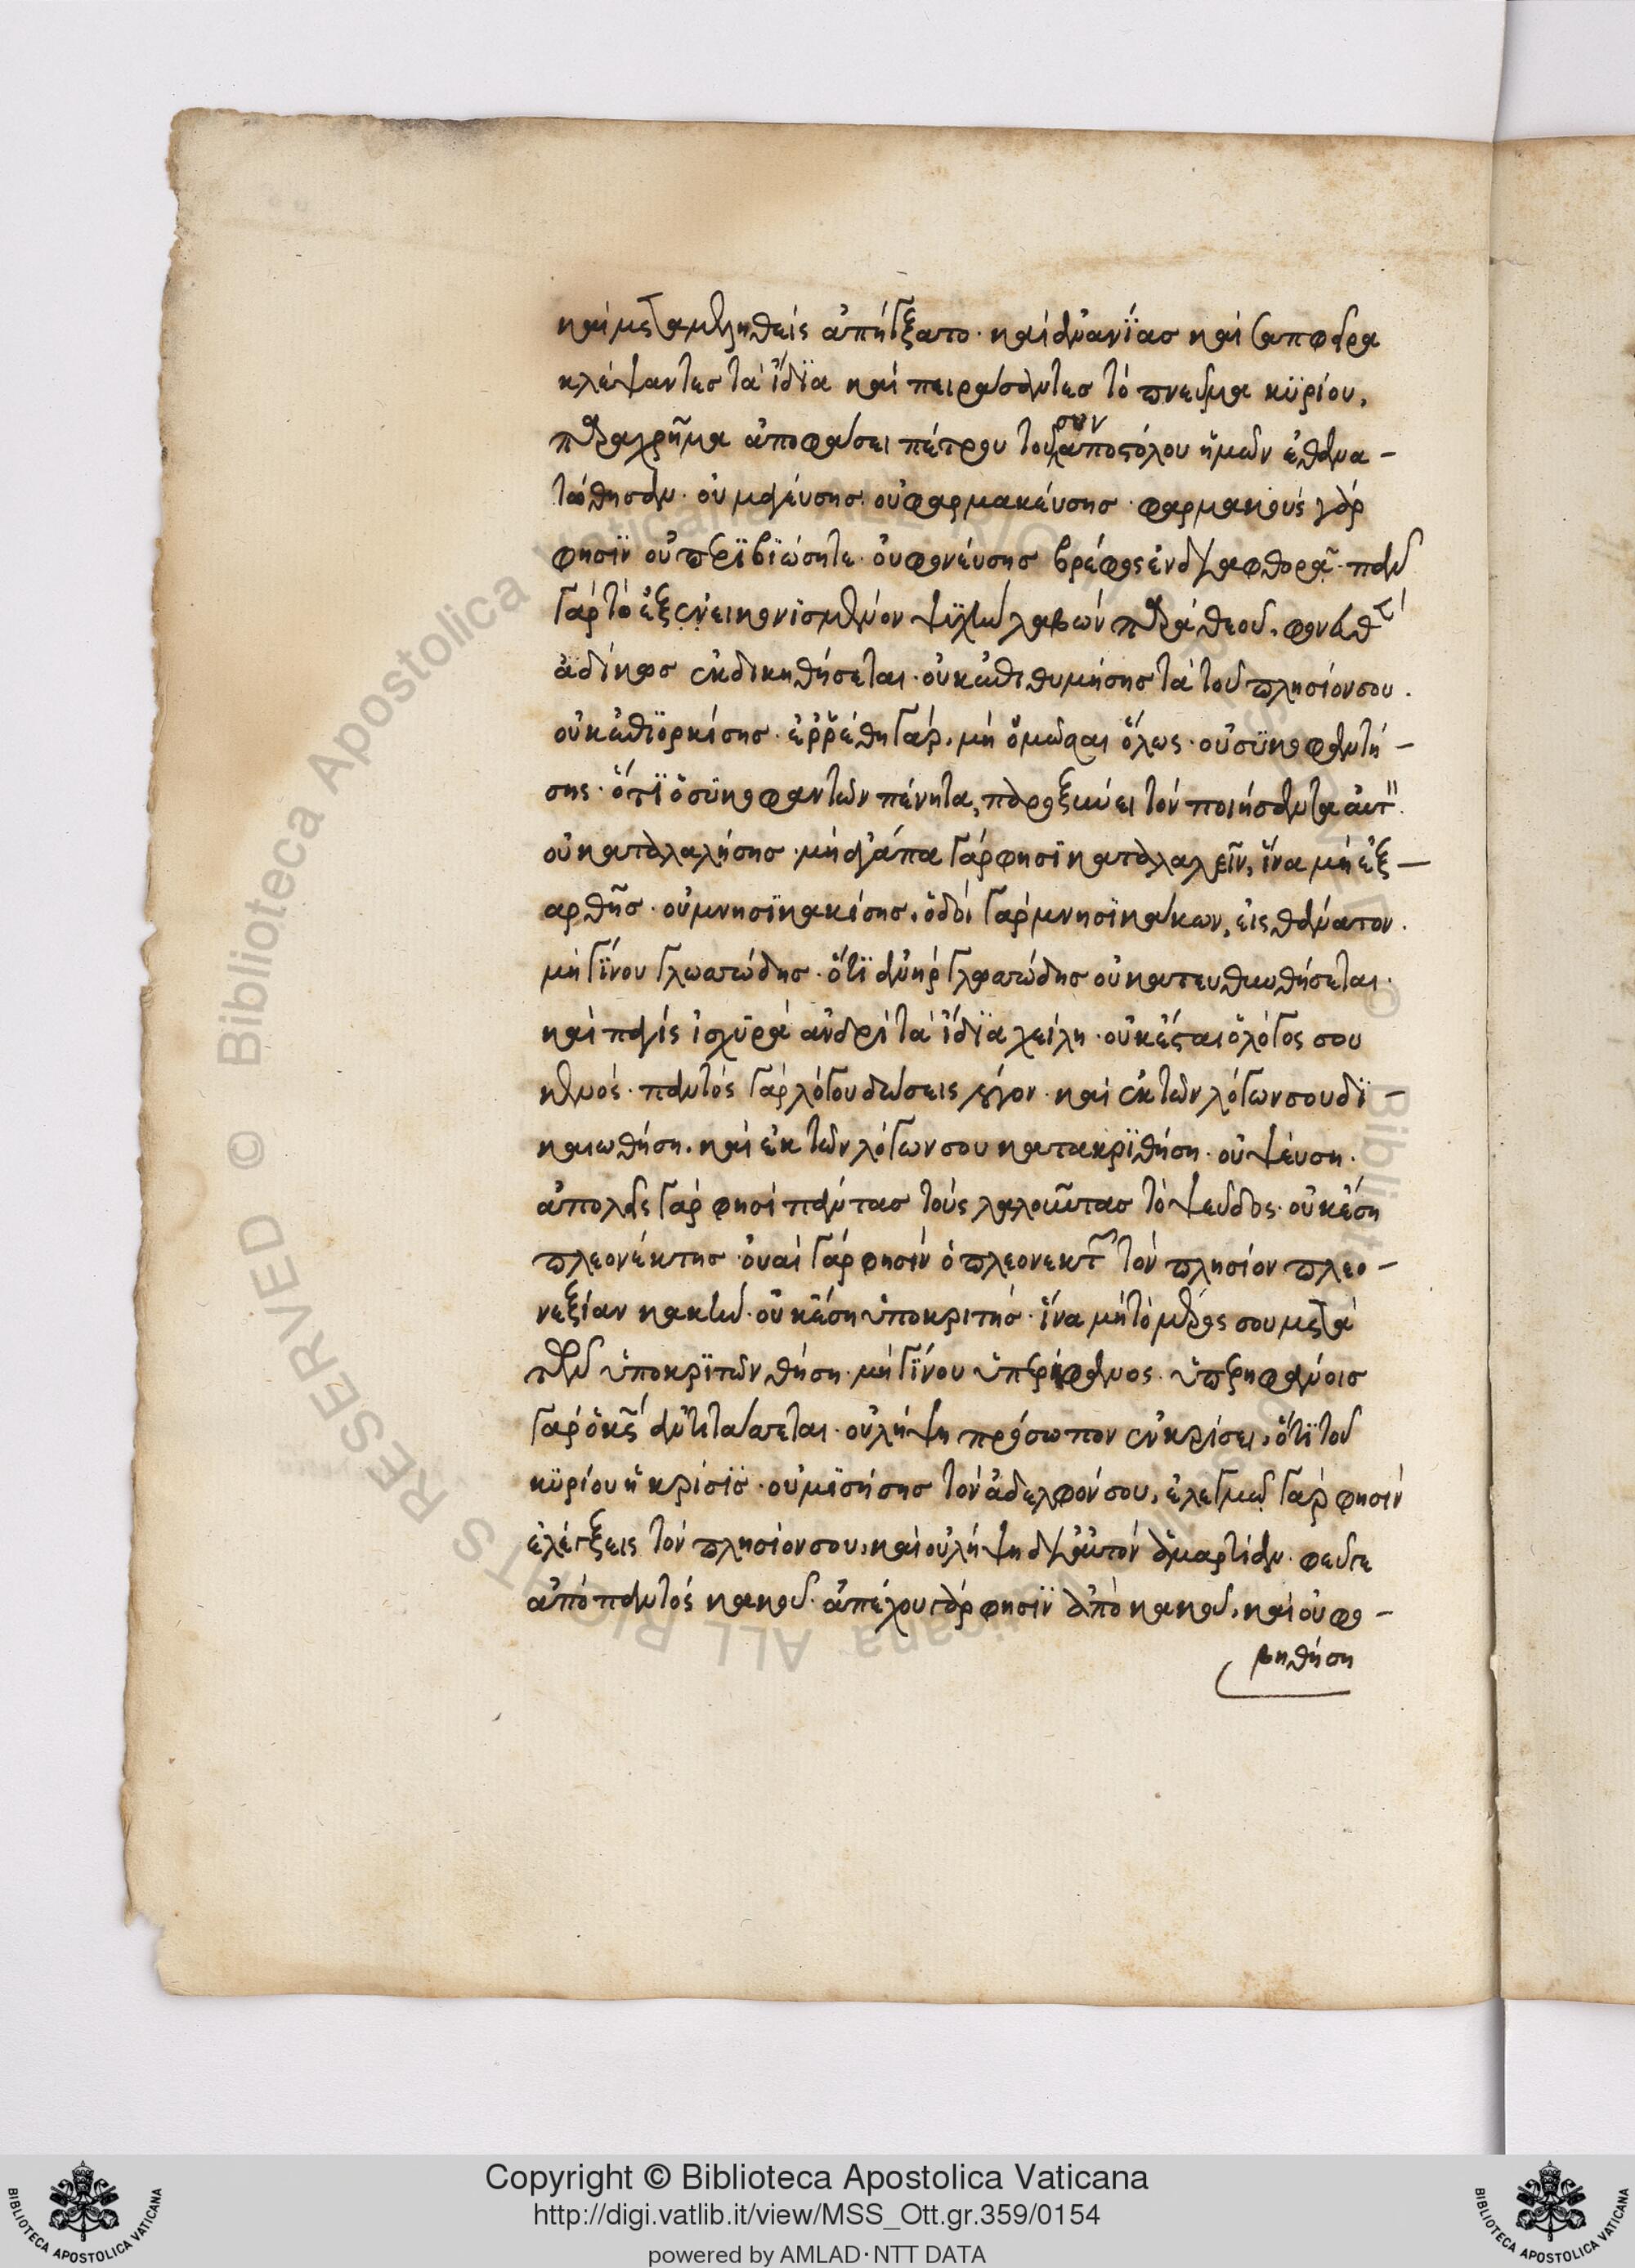 καὶ μεταμεληθεὶς ἀπήγξατο· καὶ ἀνανΐας καὶ σαπφείρα
κλέψαντες τὰ ἴδϊα καὶ πειράσαντες τὸ πνεῦμα κϋρίου,
παραχρῆμα ἀποφάσει πέτρου τοῦ συναποστόλου ἡμῶν ἐθανα-
τώθησαν· οὐ μαγεύσης· οὐ φαρμακεύσης· φαρμακοὺς γὰρ
φησῒν οὐ περϊβϊώσητε· οὐ φονεύσης βρέφος ἐν διαφθορᾷ· πᾶν
γὰρ τὸ ἐξεικονϊσμένον ψυχὴν λαβὼν παρὰ θεοῦ, φονευθὲν
ἀδίκως ἐκδικηθήσεται· οὐκ ἐπιθυμήσης τὰ τοῦ πλησίον σου.
οὐκ ἐπϊορκίσης· ἐρρέθη γάρ, μὴ ὀμῶσαι ὅλως· οὐ σϋκοφαντή-
σης· ὅτϊ ὁ σϋκοφαντῶν πένητα, παροξύνει τὸν ποιήσαντα αὐτ
οὐ καταλαλήσης· μὴ ἀγάπα γάρ φησϊ καταλαλεῖν, ἵνα μὴ ἐξ-
αρθῆς· οὐ μνησϊκακίσης· ὁδοὶ γὰρ μνησϊκάκων, εἰς θάνατον.
μὴ γΐνου γλωσσώδης· ὅτϊ ἀνὴρ γλωσσώδης οὐ κατευθυνθήσεται·
καὶ παγὶς ἰσχϋρὰ ἀνδρὶ τὰ ἴδϊα χείλη· οὐκ ἔσται ὁ λόγος σου
κενός· παντὸς γὰρ λόγου δώσεις λόγον· καὶ ἐκ τῶν λόγων σου δϊ-
καιωθήση, καὶ ἐκ τῶν λόγων σου κατακρϊθήση· οὐ ψεύση·
ἀπολεῖς γὰρ φησὶ πάντας τοὺς λαλοῦντας τὸ ψεῦδος· οὐκ ἔση
πλεονέκτης· οὐαὶ γὰρ φησὶν ὁ πλεονεκτῶν τὸν πλησίον πλεο-
νεξίαν κακὴν· οὐκ ἔση ὑποκριτής· ἵνα μὴ τὸ μέρος σου μετὰ
τῶν ὑποκρϊτῶν θήση· μὴ γΐνου ὑπερήφανος· ὑπερηφάνοις
γὰρ ὁ κς ἀντιτάσσεται· οὐ λήψη πρόσωπον ἐν κρίσει, ὅτϊ τοῦ
κϋρίου ἡ κρίσϊς· οὐ μισήσης τὸν ἀδελφόν σου, ἐλεγμῷ γὰρ φησὶν
ἐλέγξεις τὸν πλησίον σου, καὶ οὐ λήψη δι᾽ αὐτὸν ἁμαρτίαν· φεῦγε
ἀπὸ παντὸς κακοῦ· ἀπέχου γὰρ φησῒν ἀπὸ κακοῦ, καὶ οὐ φο-
βηθήση
Copyright © Biblioteca Apostolica Vaticana
http://digi.vatlib.it/view/MSS_Ott.gr.359/0154
powered by AMLAD·NTT DATA